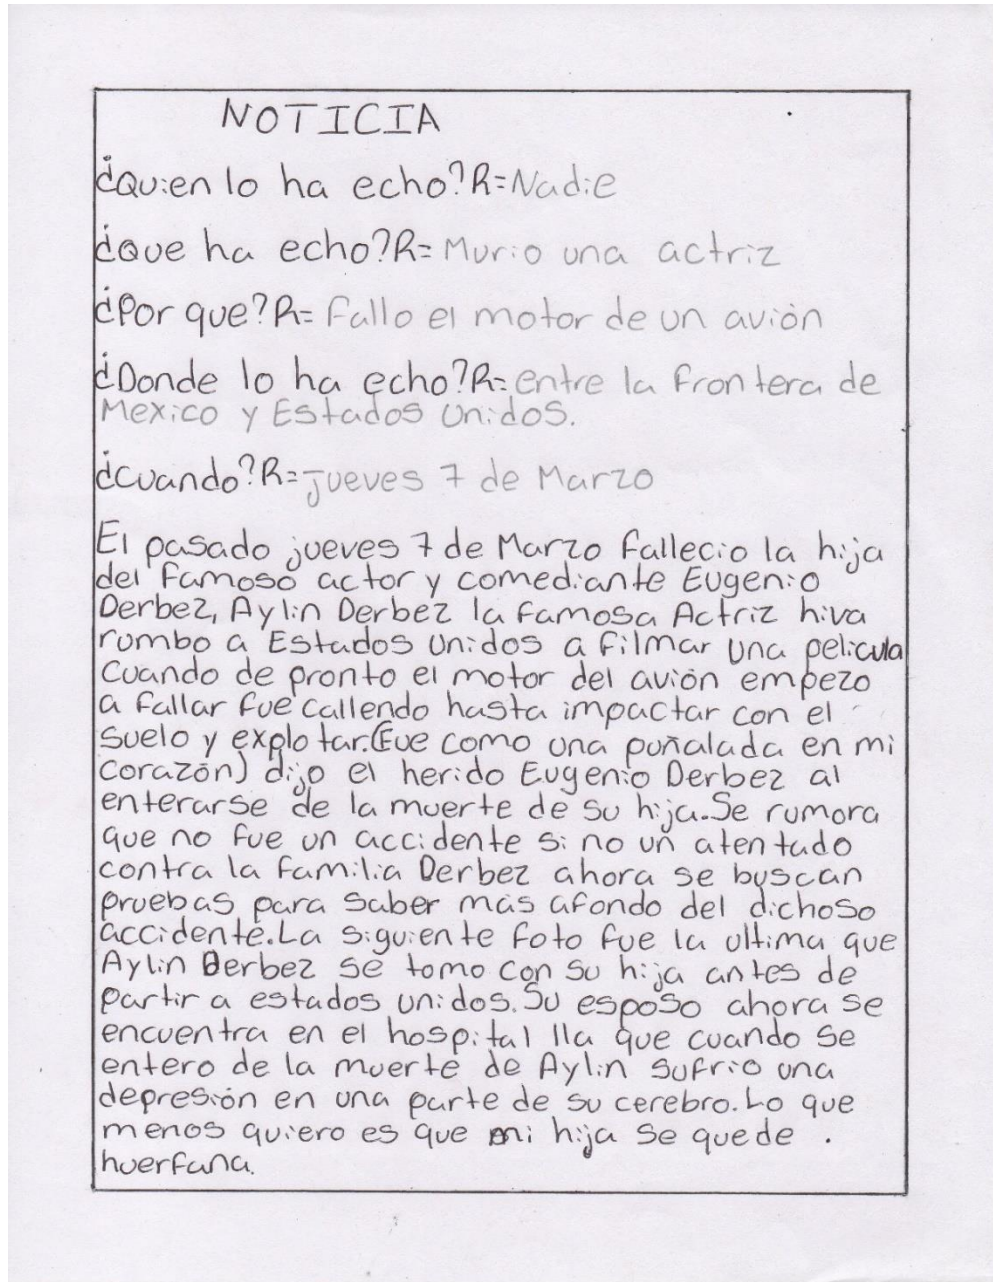 NOTICIA
¿Quien lo ha echo?R=Nadie
¿Que ha echo?R= Murio una actriz
¿Por que?R= Fallo el motor de un avión
¿Donde lo ha echo?R= entre la frontera de
Mexico y Estados Unidos.
¿Cuando?R= jueves 7 de Marzo
El pasado jueves 7 de Marzo fallecio la hija
del famoso actor y comediante Eugenio
Derbez, Aylin Derbez la famosa Actriz hiva
rumbo a Estados Unidos a filmar una pelicula
cuando de pronto el motor del avión empezo
a fallar fue callendo hasta impactar con el
suelo y explotar.(Fue como una puñalada en mi
corazón) dijo el herido Eugenio Derbez al
enterarse de la muerte de su hija.Se rumora
que no fue un accidente si no un atentado
contra la familia Derbez ahora se buscan
pruebas para saber mas afondo del dichoso
accidente.La siguiente foto fue la ultima que
Aylin Derbez se tomo con su hija antes de
partir a estados unidos.Su esposo ahora se
encuentra en el hospital lla que cuando se
entero de la muerte de Aylin sufrio una
depresión en una parte de su cerebro.Lo que
menos quiero es que mi hija se quede .
huerfana.